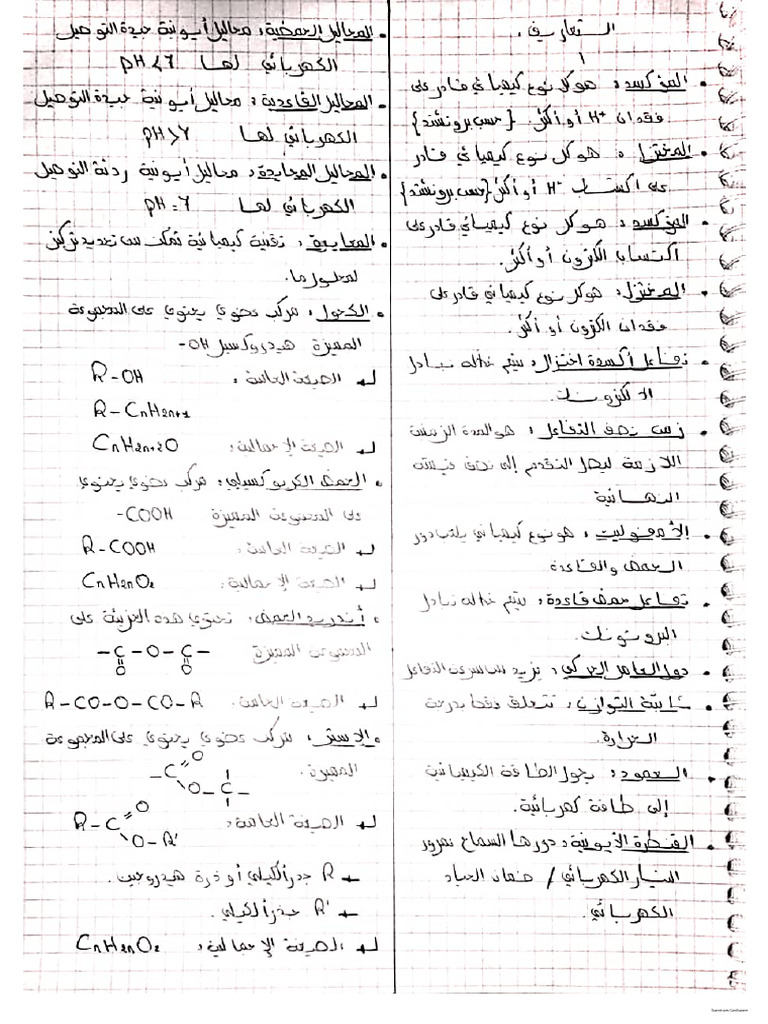 التعاريف:
• المؤكسد: هو كل نوع كيميائي قادر على
فقدان H⁺ أو أكثر. {حسب برونشتد}
• المختزل: هو كل نوع كيميائي قادر
على اكتساب H⁺ أو أكثر {حسب برونشتد}
• المؤكسد: هو كل نوع كيميائي قادر على
اكتساب الكترون أو أكثر.
• المختزل: هو كل نوع كيميائي قادر على
فقدان الكترون أو أكثر.
• تفاعل أكسدة اختزال: يتم خلاله تبادل
الالكترونات.
• زمن نصف التفاعل: هو المدة الزمنية
اللازمة ليصل التقدم إلى نصف قيمته
النهائية
• الأمفوليت: هو نوع كيميائي يلعب دور
الحمض والقاعدة
• تفاعل حمض قاعدة: يتم خلاله تبادل
البروتونات.
• دور العامل الحركي: يزيد من سرعة التفاعل
• ثابتة التوازن: تتعلق فقط بدرجة
الحرارة.
• العمود: يحول الطاقة الكيميائية
إلى طاقة كهربائية.
• القنطرة الأيونية: دورها السماح بمرور
التيار الكهربائي / ضمان الحياد
الكهربائي.
• المحاليل الحمضية: محاليل أيونية جيدة التوصيل
الكهربائي لها pH<7
• المحاليل القاعدية: محاليل أيونية جيدة التوصيل
الكهربائي لها pH>7
• المحاليل المحايدة: محاليل أيونية ردئة التوصيل
الكهربائي لها pH=7
• المعايرة: تقنية كيميائية تمكن من تحديد تركيز
محلول ما.
• الكحول: مركب عضوي يحتوي على المجموعة
المميزة هيدروكسيل OH-
↳ الصيغة العامة: R-OH
R-CnH2n+1
↳ الصيغة الإجمالية: CnH2n+2O
• الحمض الكربوكسيلي: مركب عضوي يحتوي
على المجموعة المميزة -COOH
↳ الصيغة العامة: R-COOH
↳ الصيغة الإجمالية: CnH2nO2
• أندريد الحمض: تحتوي هذه الجزيئة على
المجموعة المميزة -C-O-C-
O O
↳ الصيغة العامة: R-CO-O-CO-R
• الإستر: مركب عضوي يحتوي على المجموعة
المميزة. -C=O
O-C-
↳ الصيغة العامة: R-C=O
O-R'
← R جدر ألكيلي أو ذرة هيدروجين.
← R' جدر ألكيلي.
↳ الصيغة الإجمالية: CnH2nO2